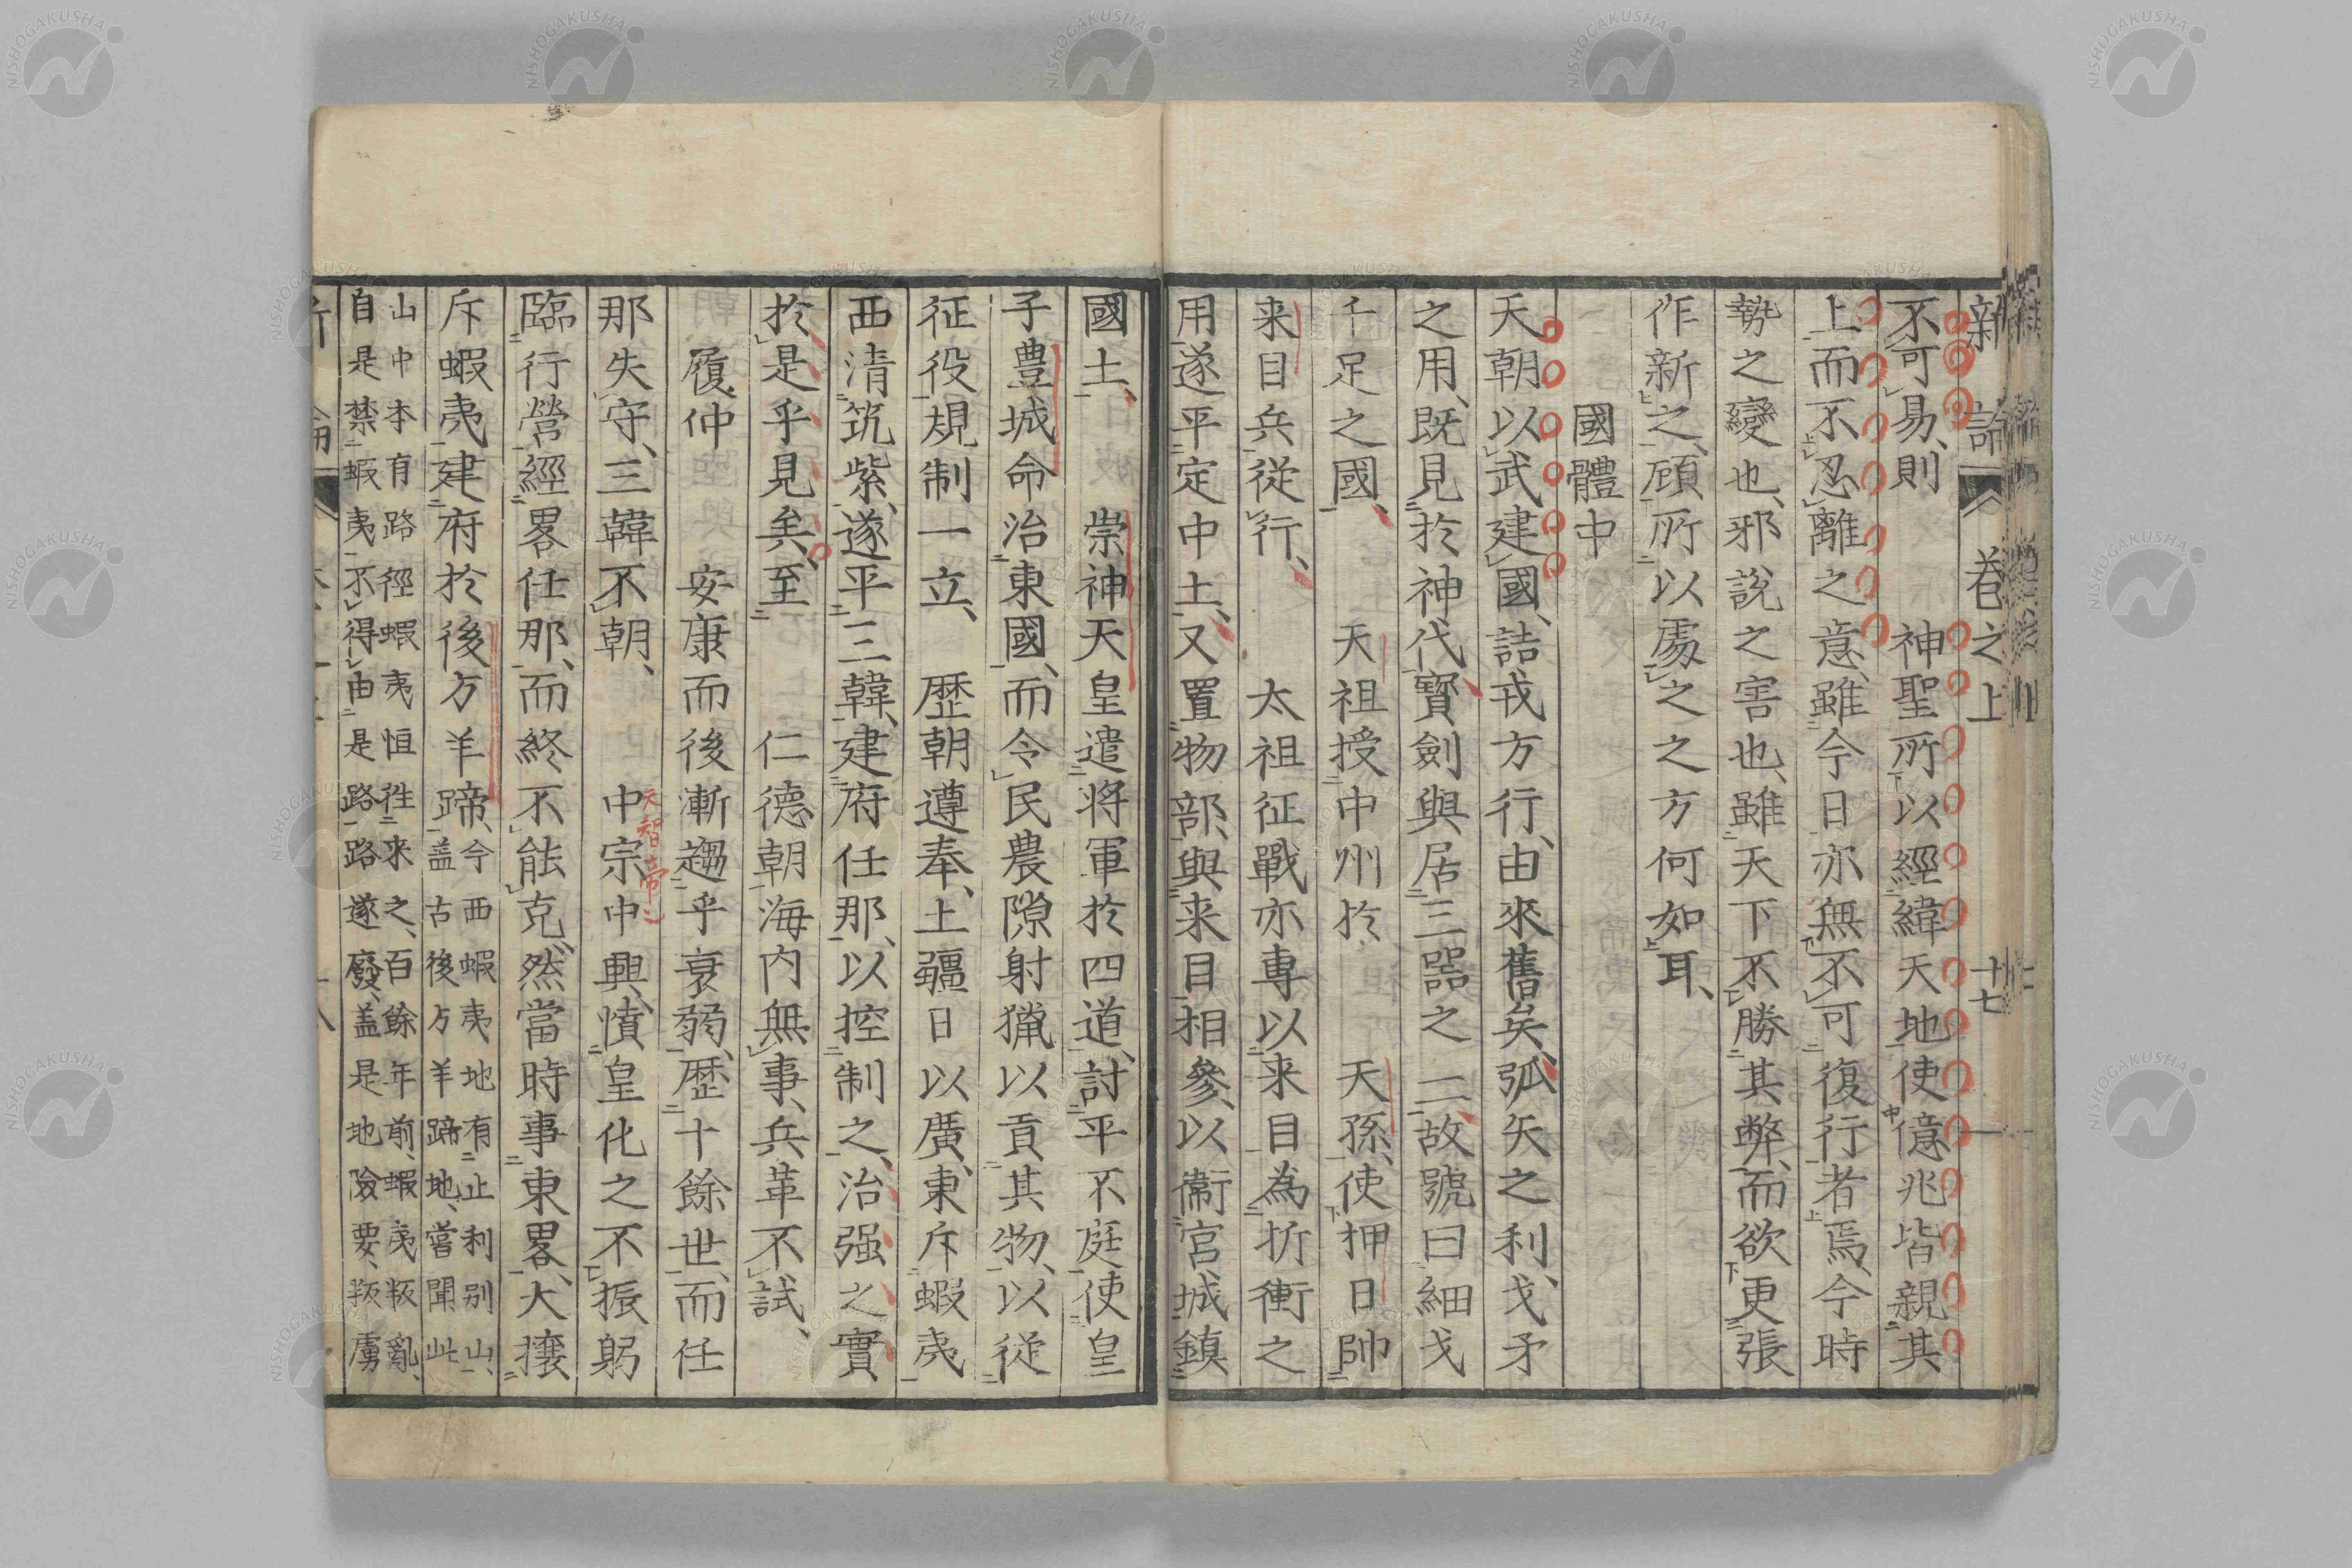 新論 卷之上 十七
不可易、則 神聖所以經緯天地使億兆皆親其
上而不忍離之意、雖今日亦無不可復行者焉、今時
勢之變也、邪說之害也、雖天下不勝其弊、而欲更張
作新之、顧所以處之之方何如耳、
國體中
天朝以武建國、詰戎方行、由來舊矣、弧矢之利、戈矛
之用、既見於神代、寶劍與居三器之一、故號曰細戈
千足之國、 天祖授中州於 天孫、使押日帥
来目兵從行、 太祖征戰亦專以来目為折衝之
用、遂平定中土、又置物部、與来目相參、以衞宮城鎮
國土、 崇神天皇遣将軍於四道、討平不庭使皇
子豊城命治東國、而令民農隙射獵以貢其物、以從
征役規制一立、 歷朝遵奉、土疆日以廣、東斥蝦夷
西清筑紫、遂平三韓、建府任那、以控制之、治强之實
於是乎見矣、至 仁德朝海内無事、兵革不試、
履仲 安康而後漸趨乎衰弱、歷十餘世、而任
那失守、三韓不朝、 中宗中興、憤皇化之不振躬
天智帝ニ
臨行營經畧任那、而終不能克、然當時事東畧、大攘
斥蝦夷建府於後方羊蹄、
今西蝦夷地有止利别山、
盖古後方羊蹄地、嘗聞此
山中本有路徑蝦夷恒往来之、百餘年前、蝦夷叛亂、
自是禁蝦夷不得由是路路遂廢、盖是地險要、叛虜